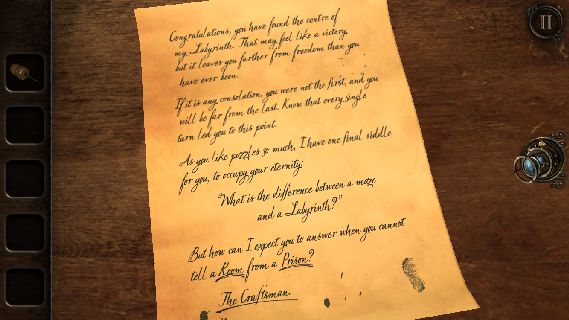 Congratulations, you have found the centre of
my Labyrinth. That may feel like a victory,
but it leaves you farther from freedom than you
have ever been.
If it is any consolation, you were not the first, and you
will be far from the last. Know that every single
turn led you to this point.
As you like puzzles so much, I have one final riddle
for you, to occupy your eternity:
"What is the difference between a maze
and a Labyrinth?"
But how can I expect you to answer when you cannot
tell a Room from a Prison?
The Craftsman.